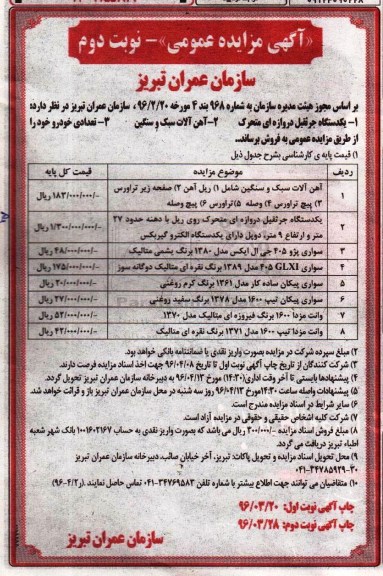 «آگهی مزایده عمومی» - نوبت دوم
سازمان عمران تبریز
بر اساس مجوز هیئت مدیره سازمان به شماره ۹۶۸ بند ۴ مورخه ۹۶/۲/۲۰، سازمان عمران تبریز در نظر دارد:
۱- یکدستگاه جرثقیل دروازه ای متحرک ۲-آهن آلات سبک و سنگین ۳- تعدادی خودرو خود را
از طریق مزایده عمومی به فروش برساند...
۱) قیمت پایه ی کارشناسی بشرح جدول ذیل
ردیف موضوع مزایده قیمت کل پایه
۱ آهن آلات سبک و سنگین شامل ۱) ریل آهن ۲) صفحه زیر تراورس ۱۸۳/۰۰۰/۰۰۰/- ریال
۳) پیچ تراورس ۴) وصله ۵)تراورس ۶) پیچ وصله
۲ یکدستگاه جرثقیل دروازه ای متحرک روی ریل با دهنه حدود ۲۷ ۱/۳۰۰/۰۰۰/۰۰۰/- ریال
متر و ارتفاع ۹ متر، دوپل دارای یکدستگاه الکترو گیربکس
۳ سواری پژو ۴۰۵ جی ال ایکس مدل ۱۳۸۰ برنگ یشمی متالیک ۴۸/۰۰۰/۰۰۰/- ریال
۴ سواری ۴۰۵ GLXI مدل ۱۳۸۹ برنگ نقره ای متالیک دوگانه سوز ۱۷۵/۰۰۰/۰۰۰/- ریال
۵ سواری پیکان ساده کار مدل ۱۳۶۱ برنگ کرم روغنی ۲۰/۰۰۰/۰۰۰/- ریال
۶ سواری پیکان تیپ ۱۶۰۰ مدل ۱۳۷۸ برنگ سفید روغنی ۲۷/۰۰۰/۰۰۰/- ریال
۷ وانت مزدا ۱۶۰۰ برنگ فیروزه ای متالیک مدل ۱۳۷۰ ۵۲/۰۰۰/۰۰۰/- ریال
۸ وانت مزدا تیپ ۱۶۰۰ مدل ۱۳۷۱ برنگ نقره ای متالیک ۴۲/۰۰۰/۰۰۰/- ریال
۲) مبلغ سپرده شرکت در مزایده بصورت واریز نقدی یا ضمانتنامه بانکی خواهد بود.
۳) شرکت کنندگان از تاریخ چاپ آگهی نوبت اول تا تاریخ ۹۶/۰۴/۰۸ جهت اخذ اسناد مزایده فرصت دارند.
۴) پیشنهادها بایستی تا آخر وقت اداری(۱۴:۳۰) مورخ ۹۶/۰۴/۱۲ به دبیرخانه سازمان عمران تبریز تحویل گردد.
۵) پیشنهادات واصله ساعت ۱۴:۳۰مورخ ۹۶/۰۴/۱۳ روز سه شنبه در محل سازمان عمران تبریز باز و قرائت خواهد شد.
۶) سایر شرایط در اسناد مزایده مندرج است.
۷) شرکت کلیه اشخاص حقیقی و حقوقی در مزایده آزاد است.
۸) مبلغ فروش اسناد مزایده ۲۰۰/۰۰۰/- ریال می باشد که بصورت واریز نقدی به حساب ۱۰۰۱۶۰۲۱۶۷ بانک شهر شعبه
اطباء تبریز دریافت می گردد.
۹) محل تحویل اسناد مزایده و تحویل پاکات: تبریز، آخر خیابان صائب، دبیرخانه سازمان عمران تبریز
۰۴۱-۳۴۷۸۵۹۲۹-۳۰
۱۰) متقاضیان می توانند جهت اطلاع بیشتر با شماره تلفن ۳۴۷۶۹۵۸۳-۰۴۱ تماس حاصل نمایند. (ر۹۶-۴/۲)
چاپ آگهی نوبت اول: ۹۶/۰۳/۲۰
چاپ آگهی نوبت دوم: ۹۶/۰۳/۲۸
سازمان عمران تبریز